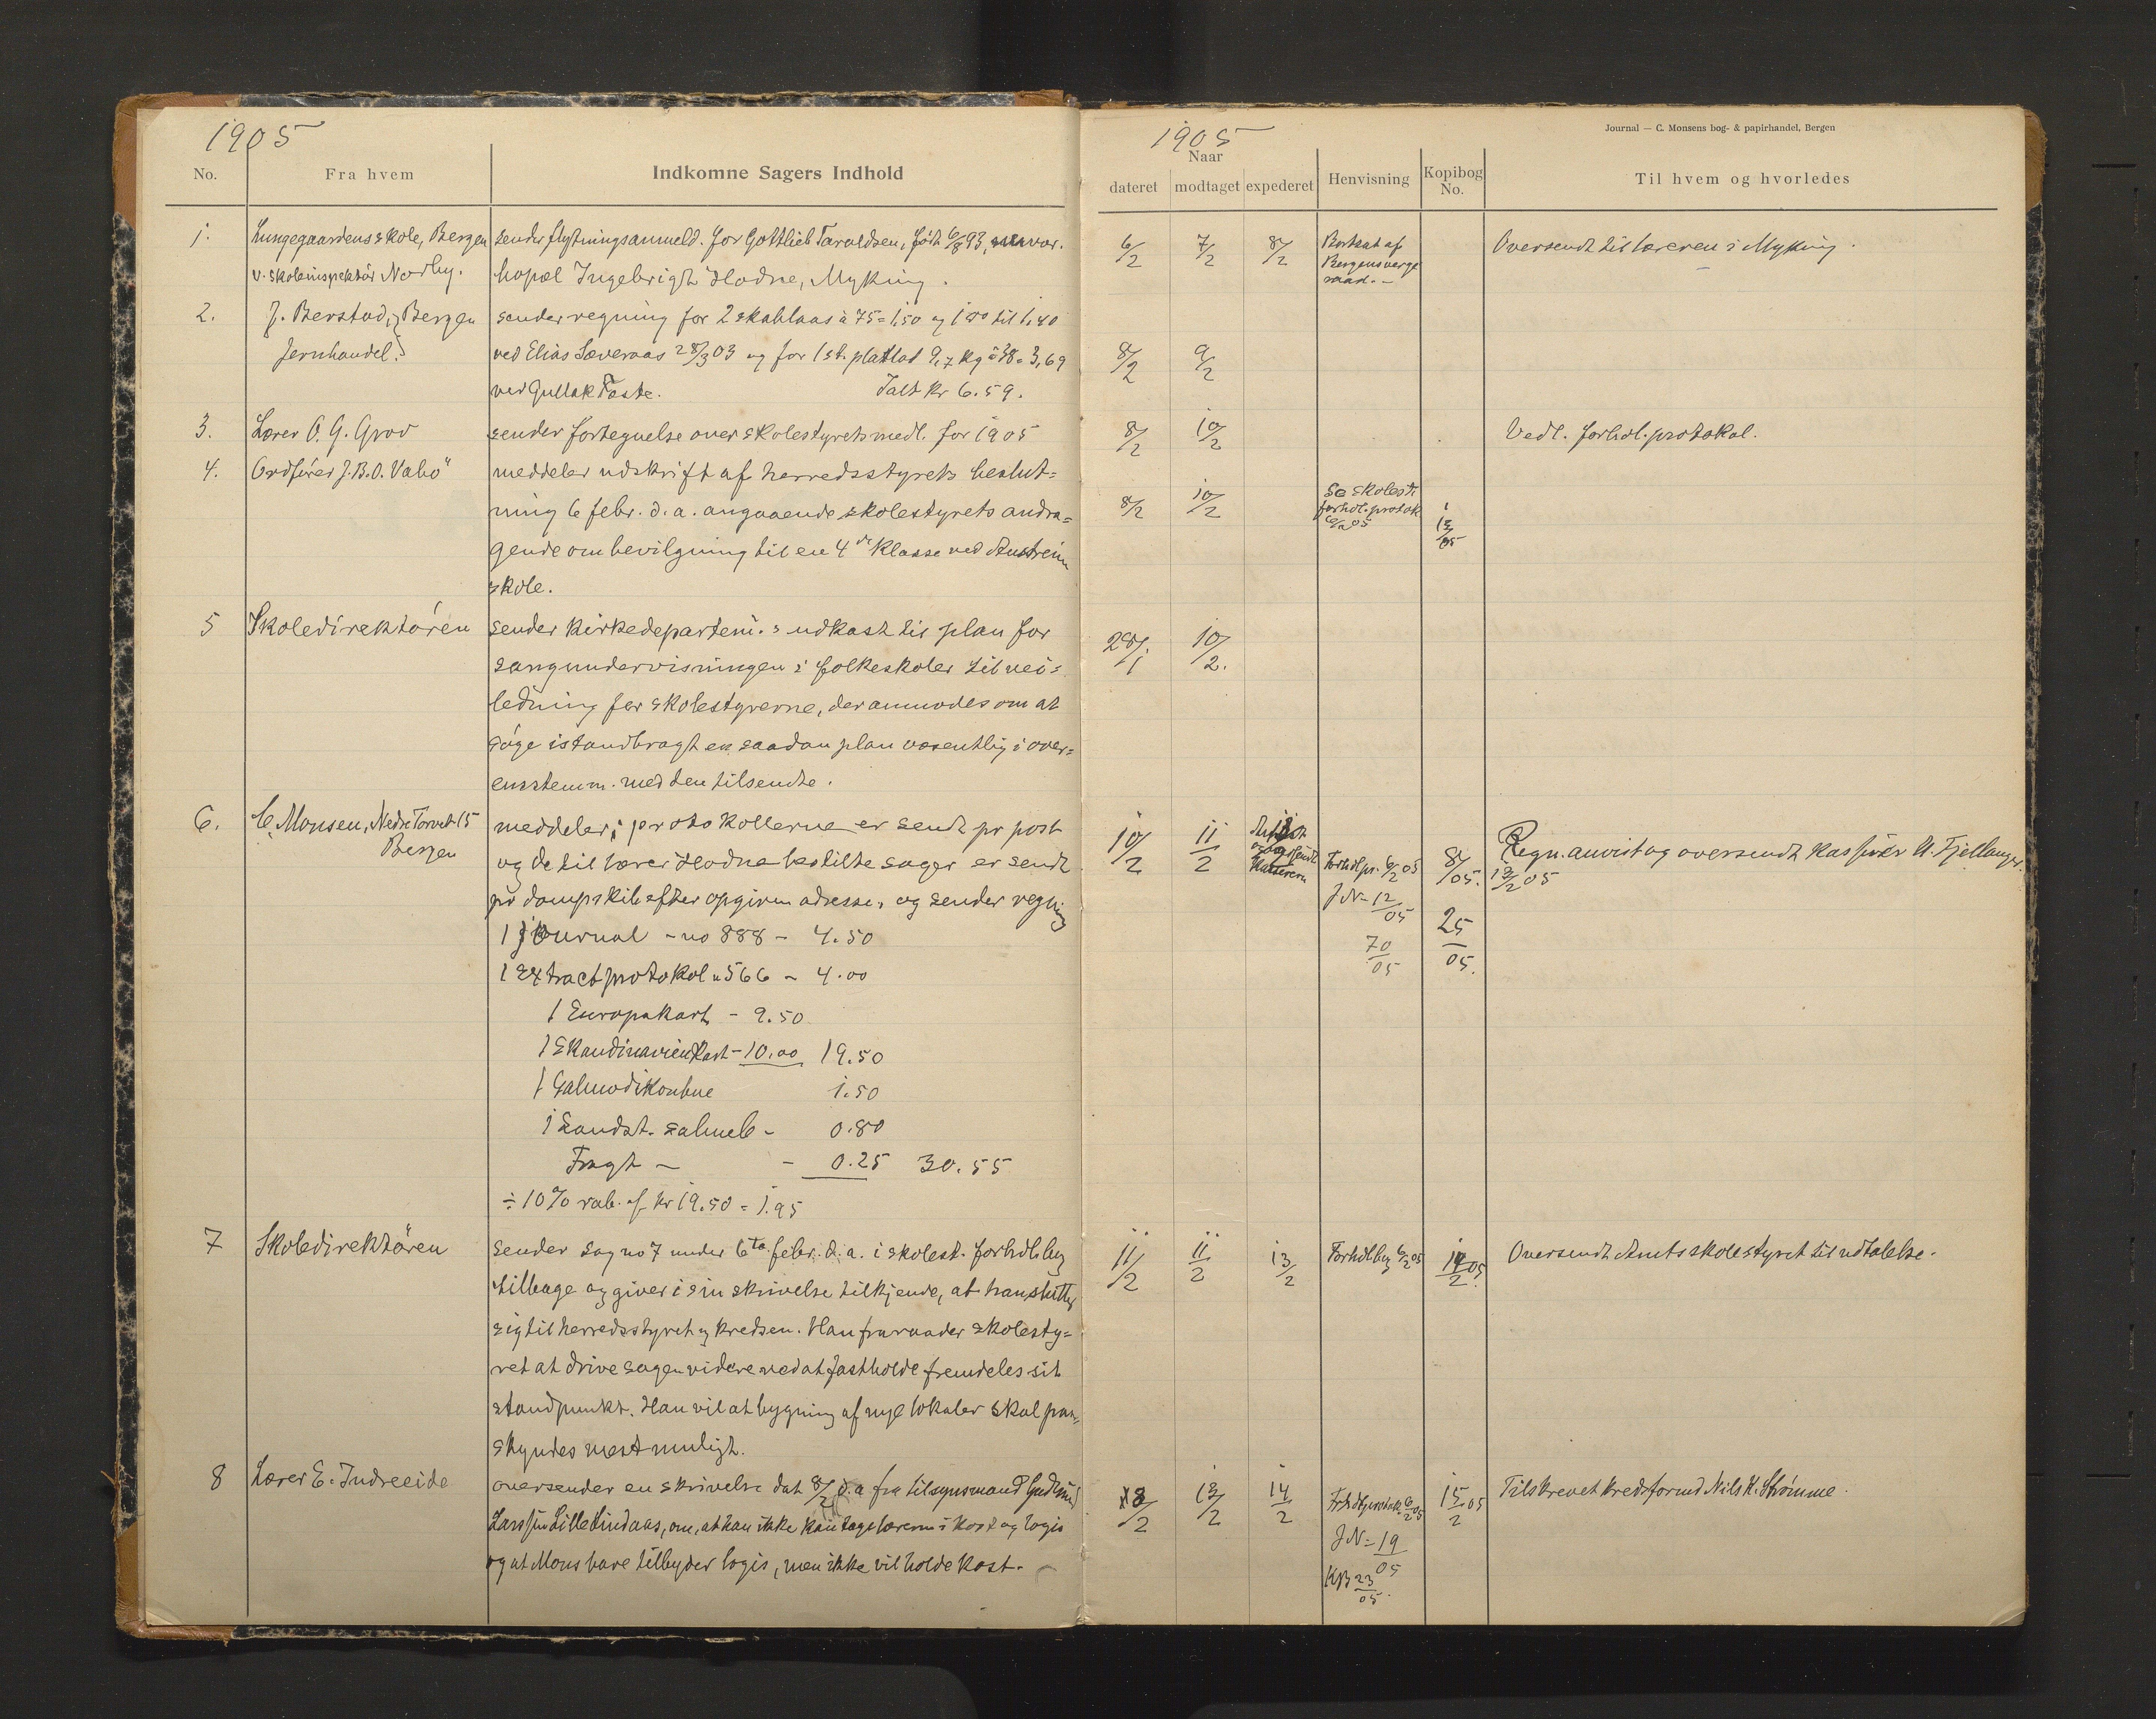 1905
No.
Fra hvem
Indkomne Sagers Indhold
1.
Lungegaardens skole, Bergen
v. skoleinspektör Nordby.
sender flytningsanmeld. for Gottlieb Taraldsen, født 6/8 93, nuvær.
bopæl Ingebrigt Hodne, Myking.
2.
J. Berstad, Bergen
Jernhandel.
sender regning for 2 skablaas à 75 = 1,50 og 1 do til 1,40
ved Elias Sæveraas 28/3 03 og for 1 st. platlod 9,7 kg à 38 = 3,69
ved Gullak Faste. Ialt kr 6.59.
3.
Lærer O. G. Grov
sender fortegnelse over skolestyrets medl. for 1905
4.
Ordfører J. B. O. Vabö
meddeler udskrift af herredsstyrets beslut=
ning 6 febr. d. a. angaaende skolestyrets andra=
gende om bevilgning til en 4de klasse ved Austreim
skole.
5
Skoledirektören
sender Kirkedepartem.s udkast til plan for
sangundervisningen i folkeskoler til vei=
ledning for skolestyrerne, der anmodes om at
söge istandbragt en saadan plan væsentlig i over=
ensstemm. med den tilsendte.
6.
C. Monsen, Nedre Torvet 15
Bergen
meddeler; protokollerne er sendt pr post
og de til lærer Hodne bestilte sager er sendt
pr dampskib efter opgiven adresse, og sender regning
1 Journal - no 888 - 4.50
1 Extractprotokol " 566 - 4.00
1 Europakart - 9.50
1 Skandinavienkart - 10.00 19.50
1 Salmodikonbue 1.50
1 Landst. salmeb - 0.80
Fragt - - 0.25 30.55
÷ 10 % rab. af kr 19.50 = 1.95
7
Skoledirektören
sender sag no 7 under 6te febr. d. a. i skolest. forhdlbog
tilbage og giver i sin skrivelse tilkjende, at han slutter
sig til herredsstyret og kredsen. Han fraraader skolesty=
ret at drive sagen videre ved at fastholde fremdeles sit
standpunkt. Han vil at bygning af nye lokaler skal paa=
skyndes mest muligt.
8
Lærer E. Indreeide
oversender en skrivelse dat 8/2 d. a fra tilsynsmand Gudmund
Larssen Lille Lindaas, om, at han ikke kan tage læreren i kost og logis
og at Mons bare tilbyder logis, men ikke vil holde kost.
1905
Journal — C. Monsens bog- & papirhandel, Bergen
Naar
dateret
modtaget
expederet
Henvisning
Kopibog
No.
Til hvem og hvorledes
6/2
7/2
8/2
Bortsat af
Bergens værge
raad. -
Oversendt til læreren i Myking.
8/2
9/2
8/2
10/2
Vedl. forhdl.protokol.
8/2
10/2
Se skolest.
forhdl.protok
6/2 05
28/1
10/2.
10/2
11/2
Forhdlpr. 6/2 05
J N- 12/05
70/05
8/05.
25/05.
Regn. anvist og oversendt kasserer A. Fjellanger.
13/2 05
11/2
11/2
13/2
Forhdlbog 6/2 05
Oversendt Amtsskolestyret til udtalelse.
13/2
14/2
Frhdlprotok 6/2 05
J N- 19/05
KB 23/05.
15/2 05
Tilskrevet kredsformd Nils H. Strømme.